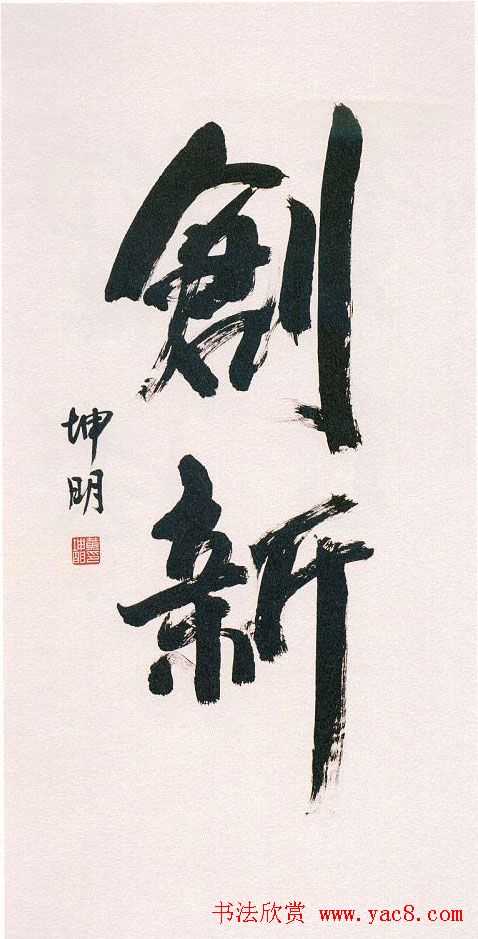 創新
坤明
黄坤明印
书法欣赏 www.yac8.com